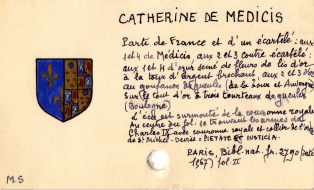 CATHERINE DE MEDICIS
Parte de France et d'un écartelé: aux
1et4 de Médicis, aux 2 et 3 contre écartelé:
aux 1et 4 d'azur semé de fleurs de lis d'or
à la tour d'argent brochant, aux 2 et 3 d'or
au gonfanon de gueules (de la Tour et Auvergne)
sur le tout d'or à trois tourteaux de gueules
(Boulogne)
L'écu est surmonté de la couronne royale
Au centre du fol. se trouvent les armes de
Charles IX avec couronne royale et collier de l'ordre
de St Michel - Devise: PIETATE ET IUSTICIA.
PARIS, Bibl. nat. fr. 2790 (daté
1567) fol. II
M.S